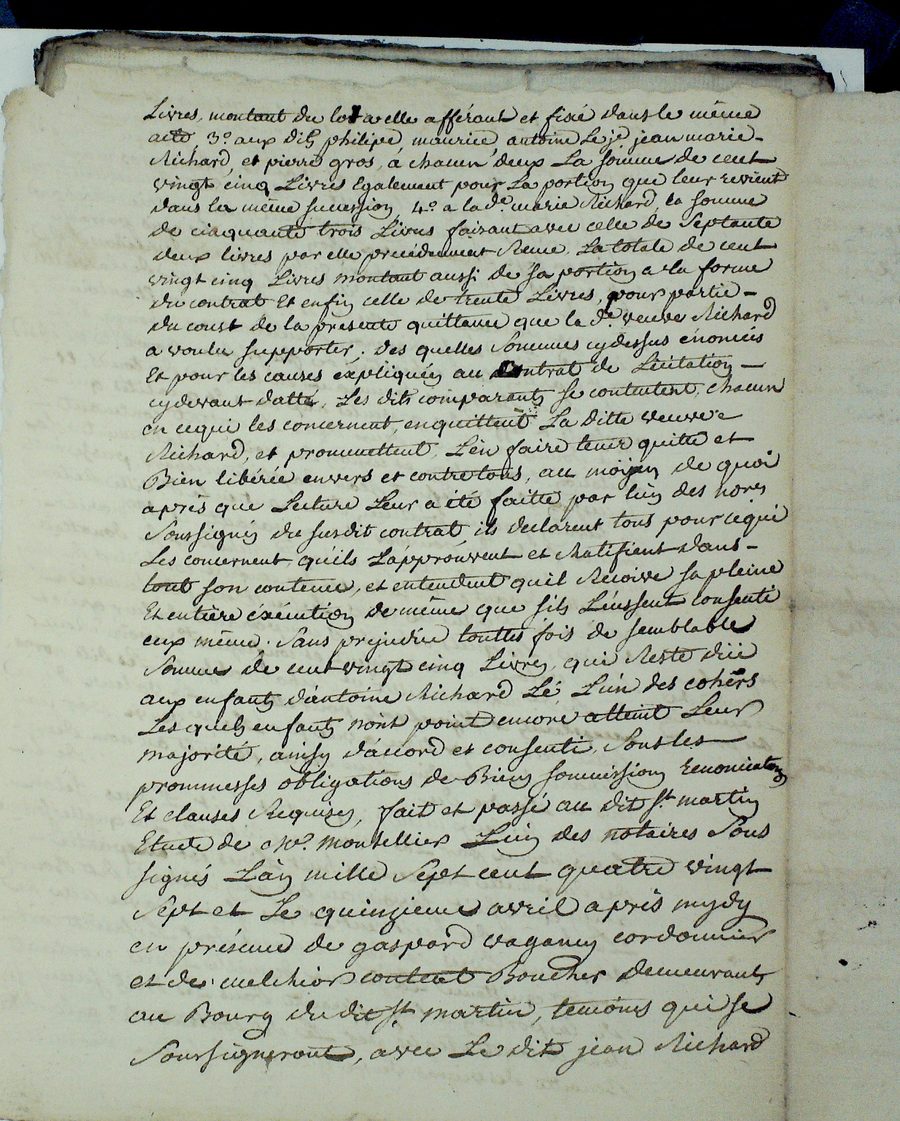 Livres, montant du lot a elle afférant et fixé dans le même
acte, 3.º aux dits philipe, maurice antoine Le jᵉ jean marie
Richard, et pierre gros, a chacun d'eux La somme de cent
vingt cinq Livres Egalement pour La portion que leur revient
dans la même sucession, 4.º a la dᵉ. marie Richard, la somme
de cinquante trois Livres faisant avec celle de Septante
deux livres par elle précédemment Reçue, La totale de cent
vingt cinq Livres montant aussi de sa portion a la forme
du contrat Et enfin celle de trente Livres, pour partie
du coust de la presente quittance que la dᵉ. veuve Richard
a voulu supporter; des quelles Sommes cydessus énoncés
Et pour les causes expliquées au Contrat de Licitation
cydevant datté, Les dits comparants se contentent, chacun
en cequi les concernent, enquittent La ditte veuve
Richard, et promettent L'en faire tenir quitte et
Bien libérée envers et contre tous, au moyen de quoi
après que Lecture Leur a été faitte par l'un des nores
Soussignés du susdit contrat, ils declarent tous pour cequi
Les concernent qu'ils L'approuvent et Ratifient dans
tout son contenue, et entendent qu'il Recoive sa pleine
Et entière éxécution de même que s'ils L'eussent consenti
eux même. Sans prejudice touttes fois de semblable
Somme de cent vingt cinq Livres, qui Reste düe
aux enfants d'antoine Richard Lé, L'un des cohérs
Les quels enfants n'ont point encore atteint Leur
majorité, ainsy d'accord et consenti, Sous les
prommesses obligations de Biens sommission Renonciations
Et clauses Requises, fait et passé au dit sᵗ martin
Etude de Mᵉ. montellier L'un des notaires Sous
signés L'an mille Sept cent quatre vingt
Sept et Le quinzieme avril après mydy
en présence de gaspard vaganey cordonnier
et de melchior content Boucher demeurants
au Bourg du dit sᵗ martin, temoins qui se
Soussigneront, avec Le dit jean Richard